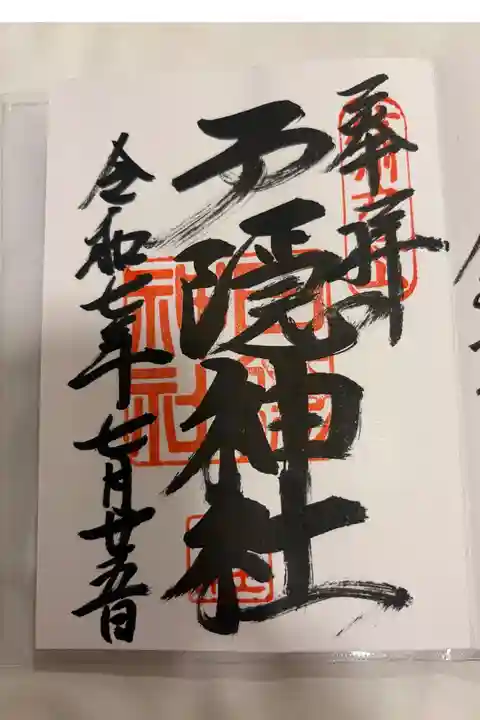 奉拝
戸隠神社
令和七年七月廿五日